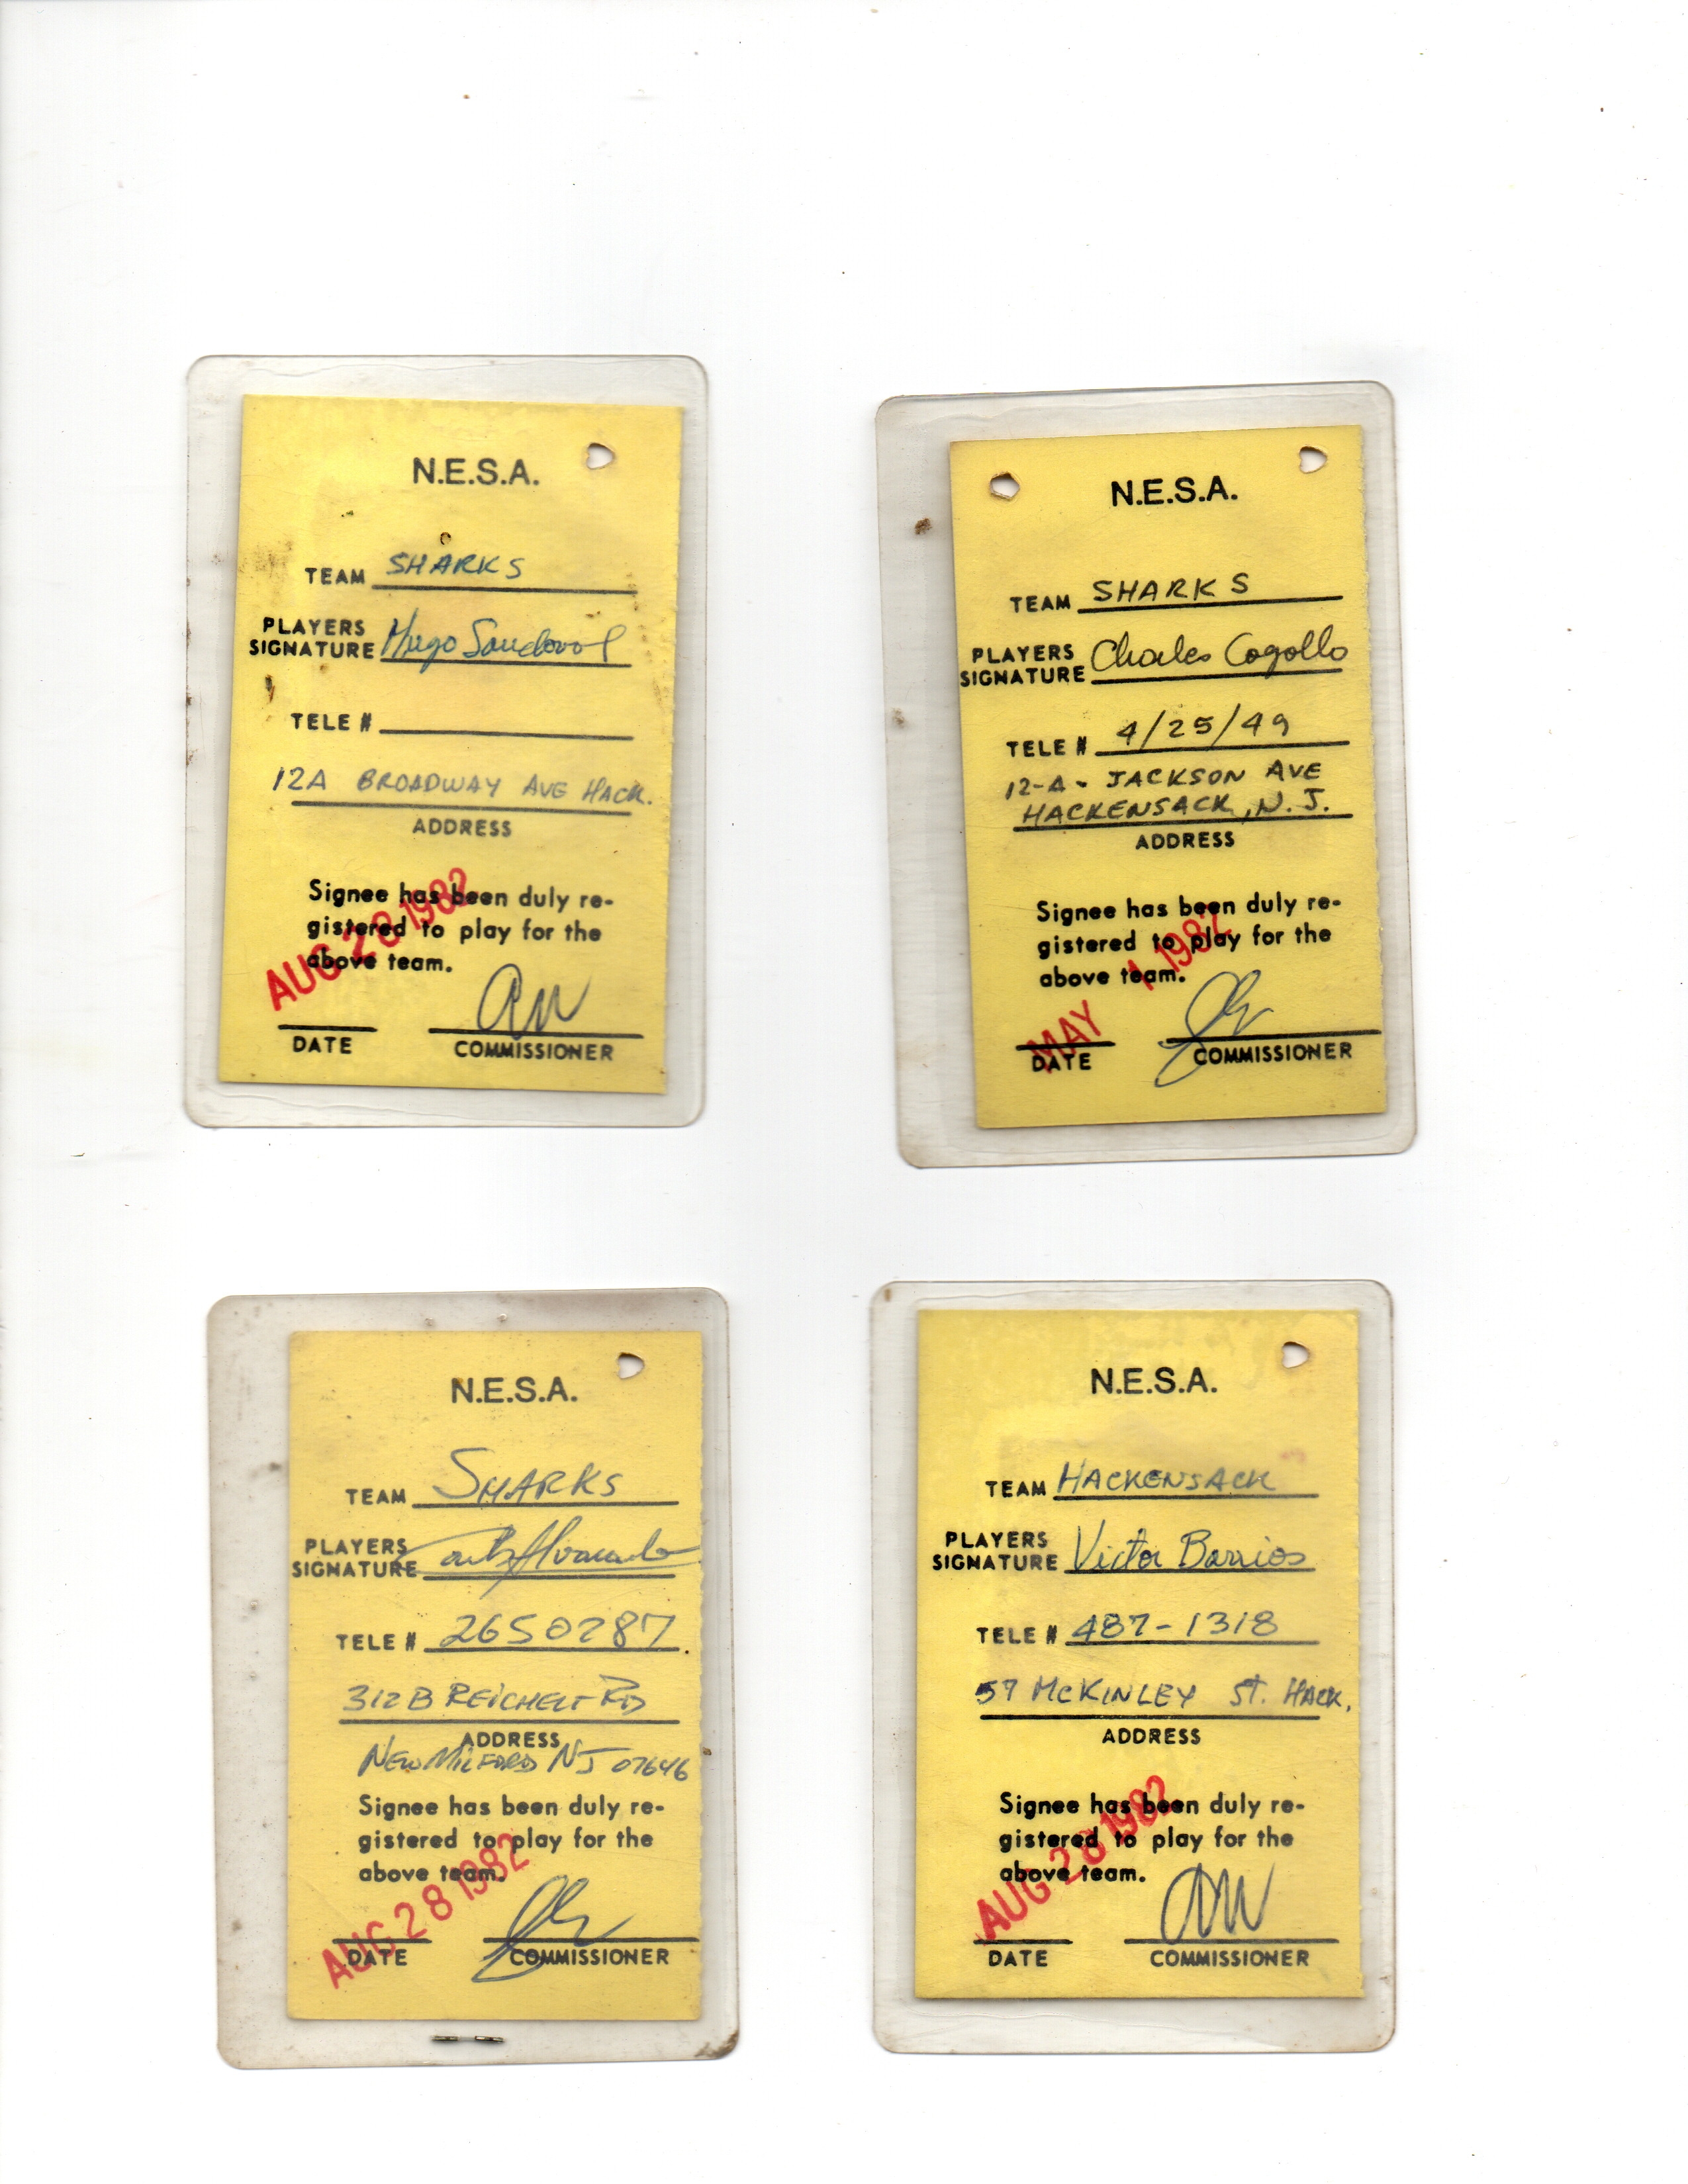 N.E.S.A.
TEAM SHARKS
PLAYERS
SIGNATURE Hugo Sandoval
TELE #
12A BROADWAY AVE HACK.
ADDRESS
Signee has been duly re-
gistered to play for the
above team.
AUG 28 1982
DATE COMMISSIONER
N.E.S.A.
TEAM SHARKS
PLAYERS
SIGNATURE Charles Cogollo
TELE # 4/25/49
12-A- JACKSON AVE
HACKENSACK, N.J.
ADDRESS
Signee has been duly re-
gistered to play for the
above team.
MAY 1 1982
DATE COMMISSIONER
N.E.S.A.
TEAM SHARKS
PLAYERS
SIGNATURE
TELE # 2650287
312B REICHELT RD
ADDRESS
NEW MILFORD NJ 07646
Signee has been duly re-
gistered to play for the
above team.
AUG 28 1982
DATE COMMISSIONER
N.E.S.A.
TEAM HACKENSACK
PLAYERS
SIGNATURE Victor Barrios
TELE # 487-1318
57 McKINLEY ST. HACK.
ADDRESS
Signee has been duly re-
gistered to play for the
above team.
AUG 28 1982
DATE COMMISSIONER